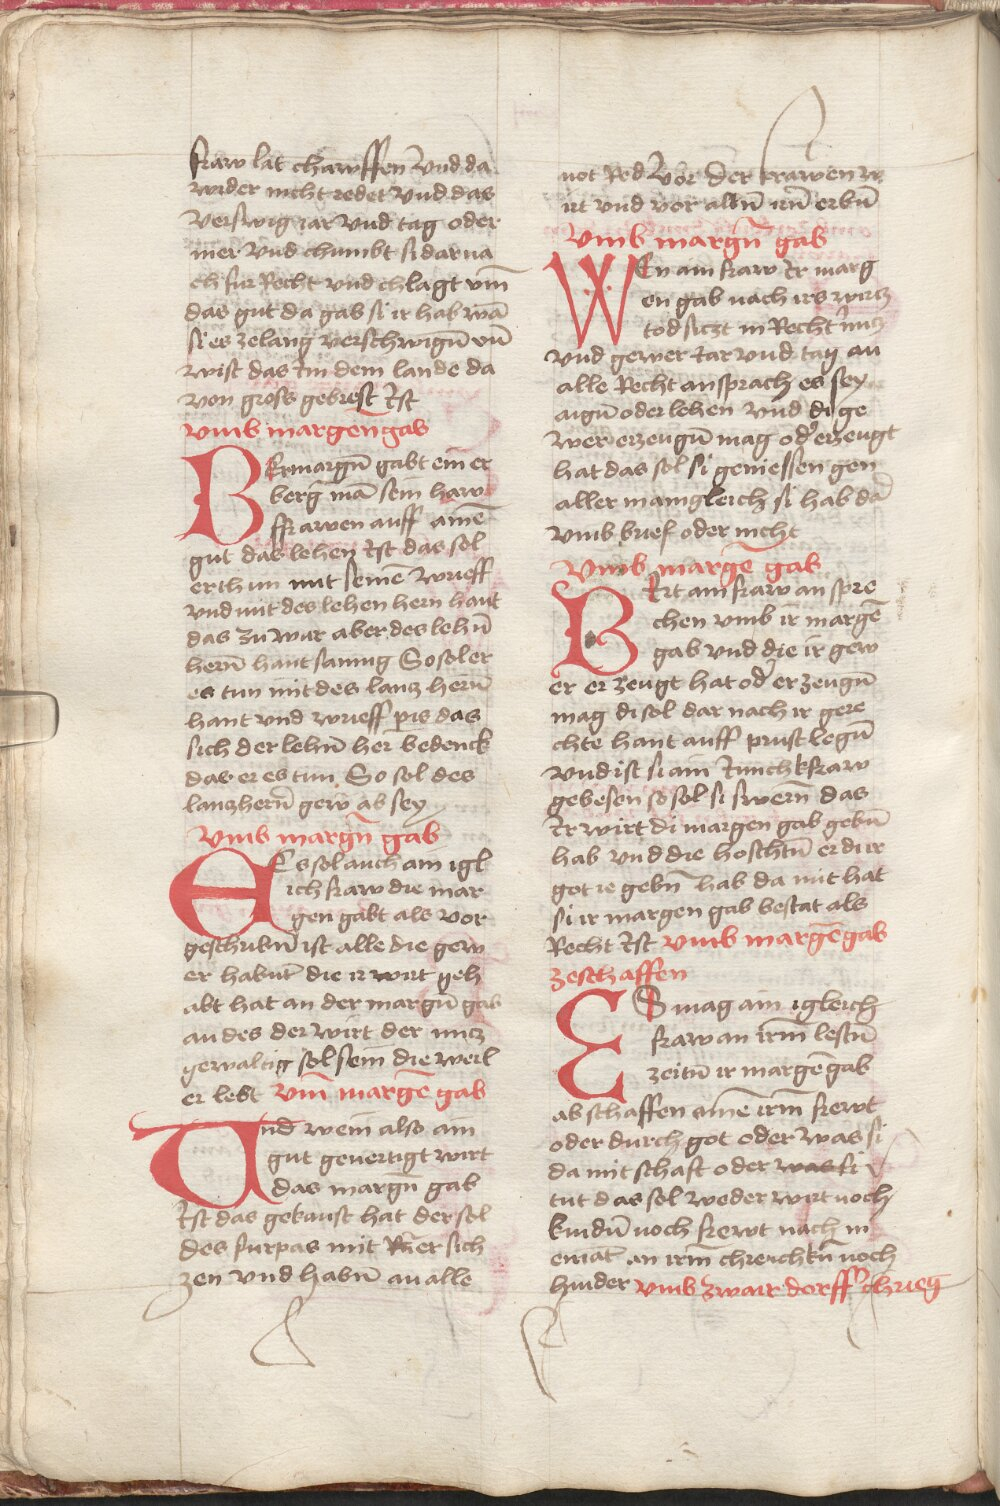 fraw lat chawffen Vnd da
wider nicht redet Vnd das
verswig iar Vnd tag oder
mer Vnd chumbt si darna
ch fur Recht vnd chlagt vm̄
das gut da gab si ir hab wā
si es zelang verschwign̄ vn̄
wist das Im dem lande da
von gross gebrest Ist
vmb margengab
BErmargn̄ gabt ein er
berḡ mā sein haw
ffrawen auff ainē
gut das lehen Ist das sol
er thun mit seinē wrieff
vnd mit des lehen hern hant
das zu war aber des lehn̄
hern̄ hant sanug So sol er
es tun mit des lantz hern̄
hant vnd wrieff pis das
sich der lehn̄ her bedenck
das er es tun So sol des
lantzhern̄ gew̄ ab sey
Vmb margn̄ gab
Es sol auch ain igl
ich fraw die mar
gen gabt als vor
geschribn̄ ist alle die gew
er habn̄t die ir wirt geh
abt hat an der margn̄ gab
an des der wirt der nucz
gewaltig sol sein die weil
er lebt vm̄ margē gab
Und wem also ain
gut geuertigt wirt
das margn̄ gab
Ist das gekauft hat der sol
des furpas mit Rn̄er sich
zen vnd habn̄ an alle
not Red Vor der frawen w
irt vnd vor alln̄ irn̄ erbn̄
Vmb margn̄ gab
WEn ain fraw Ir marg
en gab nach irs wircz
tod siczt in Recht nucz
vnd gewer Iar vnd tag an
alle Recht ansprach es sey
aign̄ oder lehen vnd di ge
wer erzeugn̄ mag od̾ erzeugt
hat das sol si geniessen gen
aller manigleich si hab da
vmb brief oder nicht
Vmb margē gab
BErt ain fraw an spre
chen vmb ir margē
gab vnd die ir gew
er er zeugt hat od̾ er zeugn̄
mag di sol dar nach ir gere
chte hant auff prust legn̄
vnd ist si ain Iunchkfraw
gebesen so sol si swern̄ das
Ir wirt di margen gab gebn̄
hab vnd die hoschtn̄ er di ir
got ie gebn̄ hab da mit hat
si ir margen gab bestat als
Recht Ist vmb margēgab
zeschaffen
ES mag ain igleich
fraw an irm̄ lestn̄
zeitn̄ ir margēgab
ab schaffen ainē irm̄ frewt
oder durch got oder was si
da mit schaft oder was si
tut das sol weder wirt noch
kindn̄ noch frewt nach in
emat an irm̄ chreichkn̄ noch
hinder vmb zwair dorff chrieg